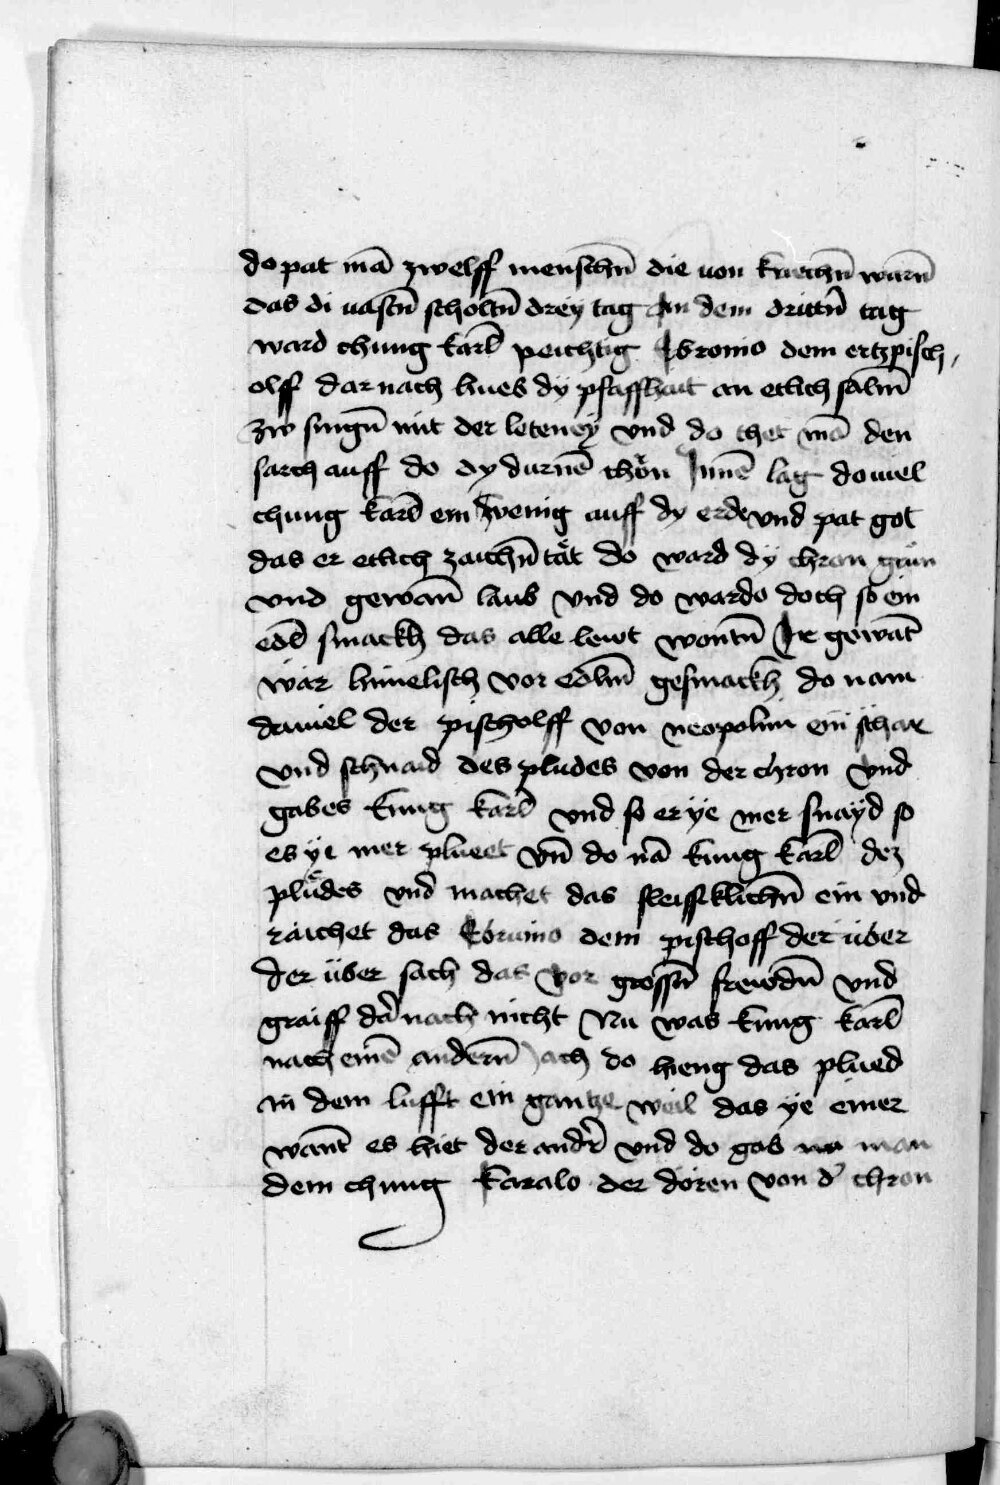 do pat mā zwelff menschn̄ die von kriechn̄ warn̄
das di vastn̄ scholtn̄ drey tag An dem drittn̄ tag
ward chung karl̄ peichtig Ebronio dem ertzpisch,
olff dar nach hues dÿ pfaffhait an etlich salm̄
zw singn̄ mit der leteney vnd do thet mā den
sarch auff do dy durnē chön̆ Innē lag do viel
chung karl̄ ein wenig auff dy erde vnd pat got
das er etlich zaichn̄ tät do ward dÿ chron grün
vnd gewan̄ laub vnd do wardo doch so ein
edl̄ smackh das alle lewt wontn̄ Ir gewāt
wär himelisch vor edlm̄ gesmackh do nam
daniel der pischolff von neopolim ein schar
vnd schnaid des pludes von der chron vnd
gabes kung karl̄ vnd so er ye mer snayd so
es ye mer plueet vn̄ do nā kung karl̄ dez
plůdes vnd machet das fleissiklichn̄ ein vnd
raichet das Ebrunio dem pischoff der über
der über sach das vor grossn̄ frewdn̄ vnd
graiff dar̄ nach nicht Nu was kung karl̄
nach eimē andern̄ ach do hieng das plued
in dem lufft ein gantze weil das ye einer
want̄ es hiet der andr̄ vnd do gab man
dem chung karalo der dören von d' chron